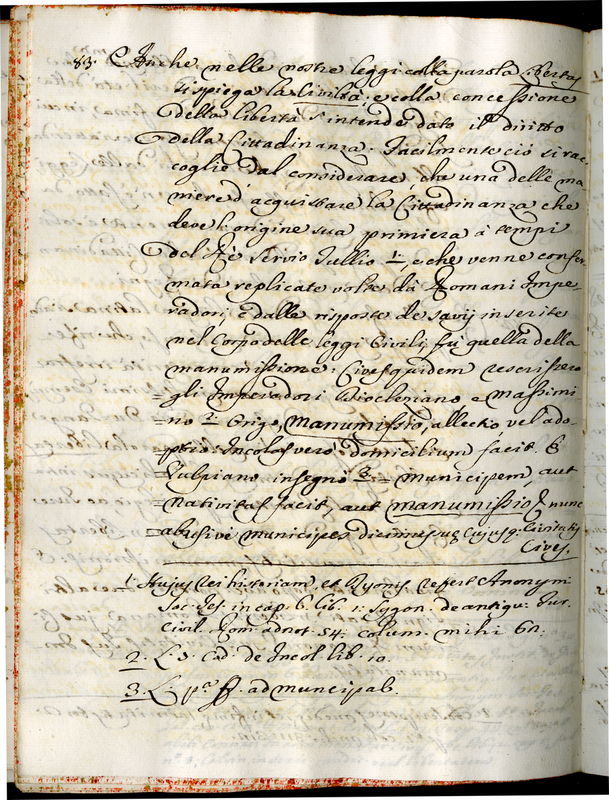 83. Anche nelle nostre leggi colla parola Libertas
si spiega la Civiltà; e colla concessione
della libertà s'intende dato il diritto
della Cittadinanza. Facilmente ciò si rac=
coglie dal considerare, che una delle ma=
niere d'acquistare la Cittadinanza che
deve l'origine sua primiera a' tempi
del Rè Servio Tullio 1., e che venne confer=
mata replicate volte dà Romani Impe=
radori, è dalle risposte de Savij inserite
nel Corpo delle leggi Civili, fu quella della
manumissione: Cives quidem rescrissero
gli Imperadori Diocleniano e Massimi
=no 2. Origo, manumissio, allectio vel ado=
=ptio: Incolas verò domicilium facit. E
=Vulpiano insegnò 3. = Municipem, aut
=nativitas facit, aut manumissio, & nunc
=abusive municipes dicimus suę Cujusq. Civitatis
Cives.
1. Hujus rei historiam, et refert Anonym:
Soc. Jes. in cap. 6. lib. 1: Sygon. de antiqu: Jur.
Civil. Rom. adnot. 54: colum. mihi 67.
2. L 5. Cod. de Incol lib. 10.
3. L pª ff. ad muncipab.